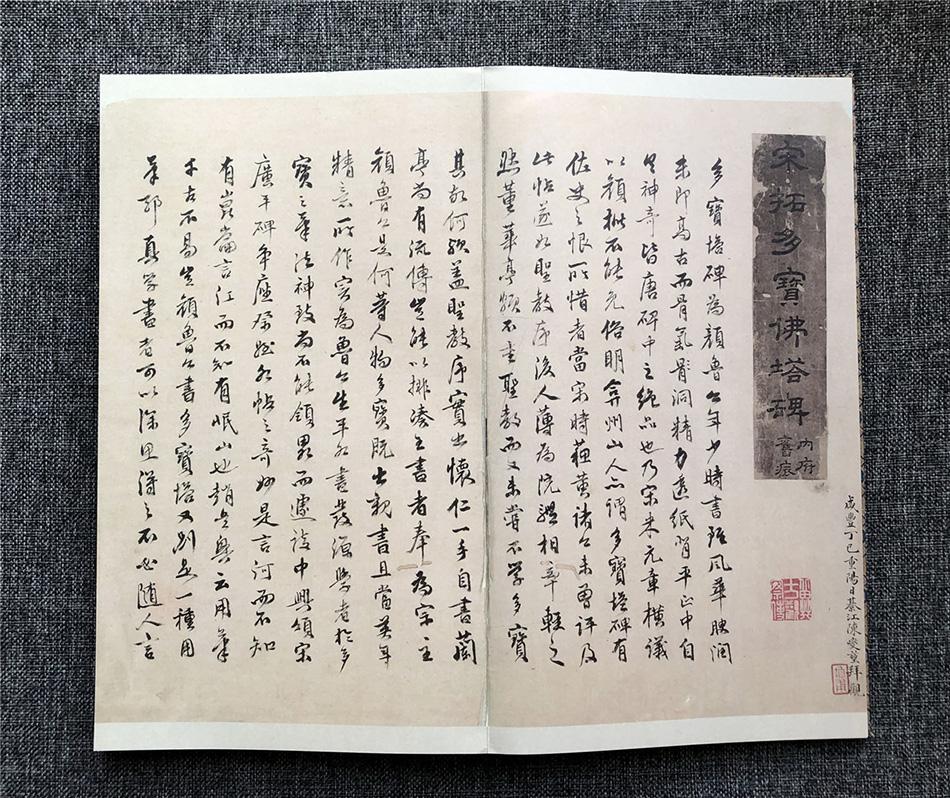 宋拓多寶佛塔碑
內府
舊痕
咸豐丁巳重陽日綦江陳 拜觀
多寶塔碑為顏魯公年少時書雖風華腴潤
未即高古而骨氣 洞精力透紙背平正中自
具神奇皆唐碑中之絕品也乃宋米元章橫議
以顏 不能免俗明弇州山人亦謂多寶塔碑有
佐史之恨所惜者當宋時蘇黃諸公未曾評及
此帖遂如聖教序後人薄為院體相率輕之
然董華亭頗不重聖教而又未嘗不學多寶
其故何歟蓋聖教序實出懷仁一手自書蘭
亭尚有流傳豈能以排湊之書者奉為宗主
顏魯公是何等人物多寶既出親書且當英年
精意所作實為魯公生平妙書發源學者於多
寶之筆法神致尚不能領畧而遽談中興頌宋
廣平碑爭座祭姪各帖之奇妙是言河而不知
有崑崙言江而不知有岷山也趙吳興云用筆
千古不易豈顏魯公書多寶塔又別是一種用
筆耶真學書者可以深思得之不必隨人言